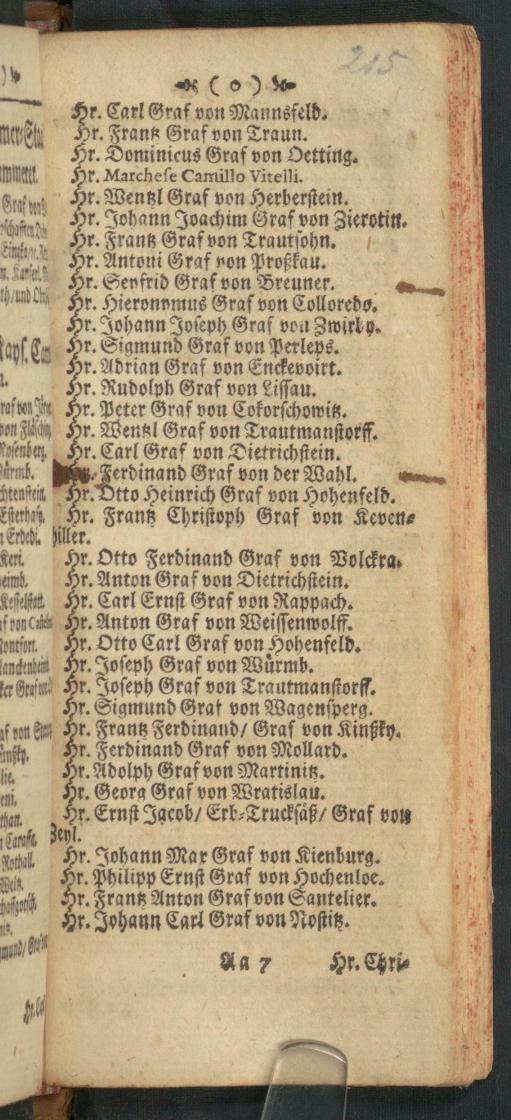 215
( o )
Hr. Carl Graf von Mannsfeld.
Hr. Frantz Graf von Traun.
Hr. Dominicus Graf von Oetting.
Hr. Marchese Camillo Vitelli.
Hr. Wentzl Graf von Herberstein.
Hr. Johann Joachim Graf von Zierotin.
Hr. Frantz Graf von Trautsohn.
Hr. Antoni Graf von Proßkau.
Hr. Seyfrid Graf von Breuner.
Hr. Hieronymus Graf von Colloredo.
Hr. Johann Joseph Graf von Zwirby.
Hr. Sigmund Graf von Perleps.
Hr. Adrian Graf von Enckevoirt.
Hr. Rudolph Graf von Lissau.
Hr. Peter Graf von Cokorschowitz.
Hr. Wentzl Graf von Trautmanstorff.
Hr. Carl Graf von Dietrichstein.
Hr. Ferdinand Graf von der Wahl.
Hr. Otto Heinrich Graf von Hohenfeld.
Hr. Frantz Christoph Graf von Keven-
hiller.
Hr. Otto Ferdinand Graf von Volckra.
Hr. Anton Graf von Dietrichstein.
Hr. Carl Ernst Graf von Rappach.
Hr. Anton Graf von Weissenwolff.
Hr. Otto Carl Graf von Hohenfeld.
Hr. Joseph Graf von Würmb.
Hr. Joseph Graf von Trautmanstorff.
Hr. Sigmund Graf von Wagensperg.
Hr. Frantz Ferdinand/ Graf von Kinßky.
Hr. Ferdinand Graf von Mollard.
Hr. Adolph Graf von Martinitz.
Hr. Georg Graf von Wratislau.
Hr. Ernst Jacob/ Erb-Trucksäß/ Graf von
Zeyl.
Hr. Johann Max Graf von Kienburg.
Hr. Philipp Ernst Graf von Hochenloe.
Hr. Frantz Anton Graf von Santelier.
Hr. Johann Carl Graf von Nostitz.
Aa 7 Hr. Chri-